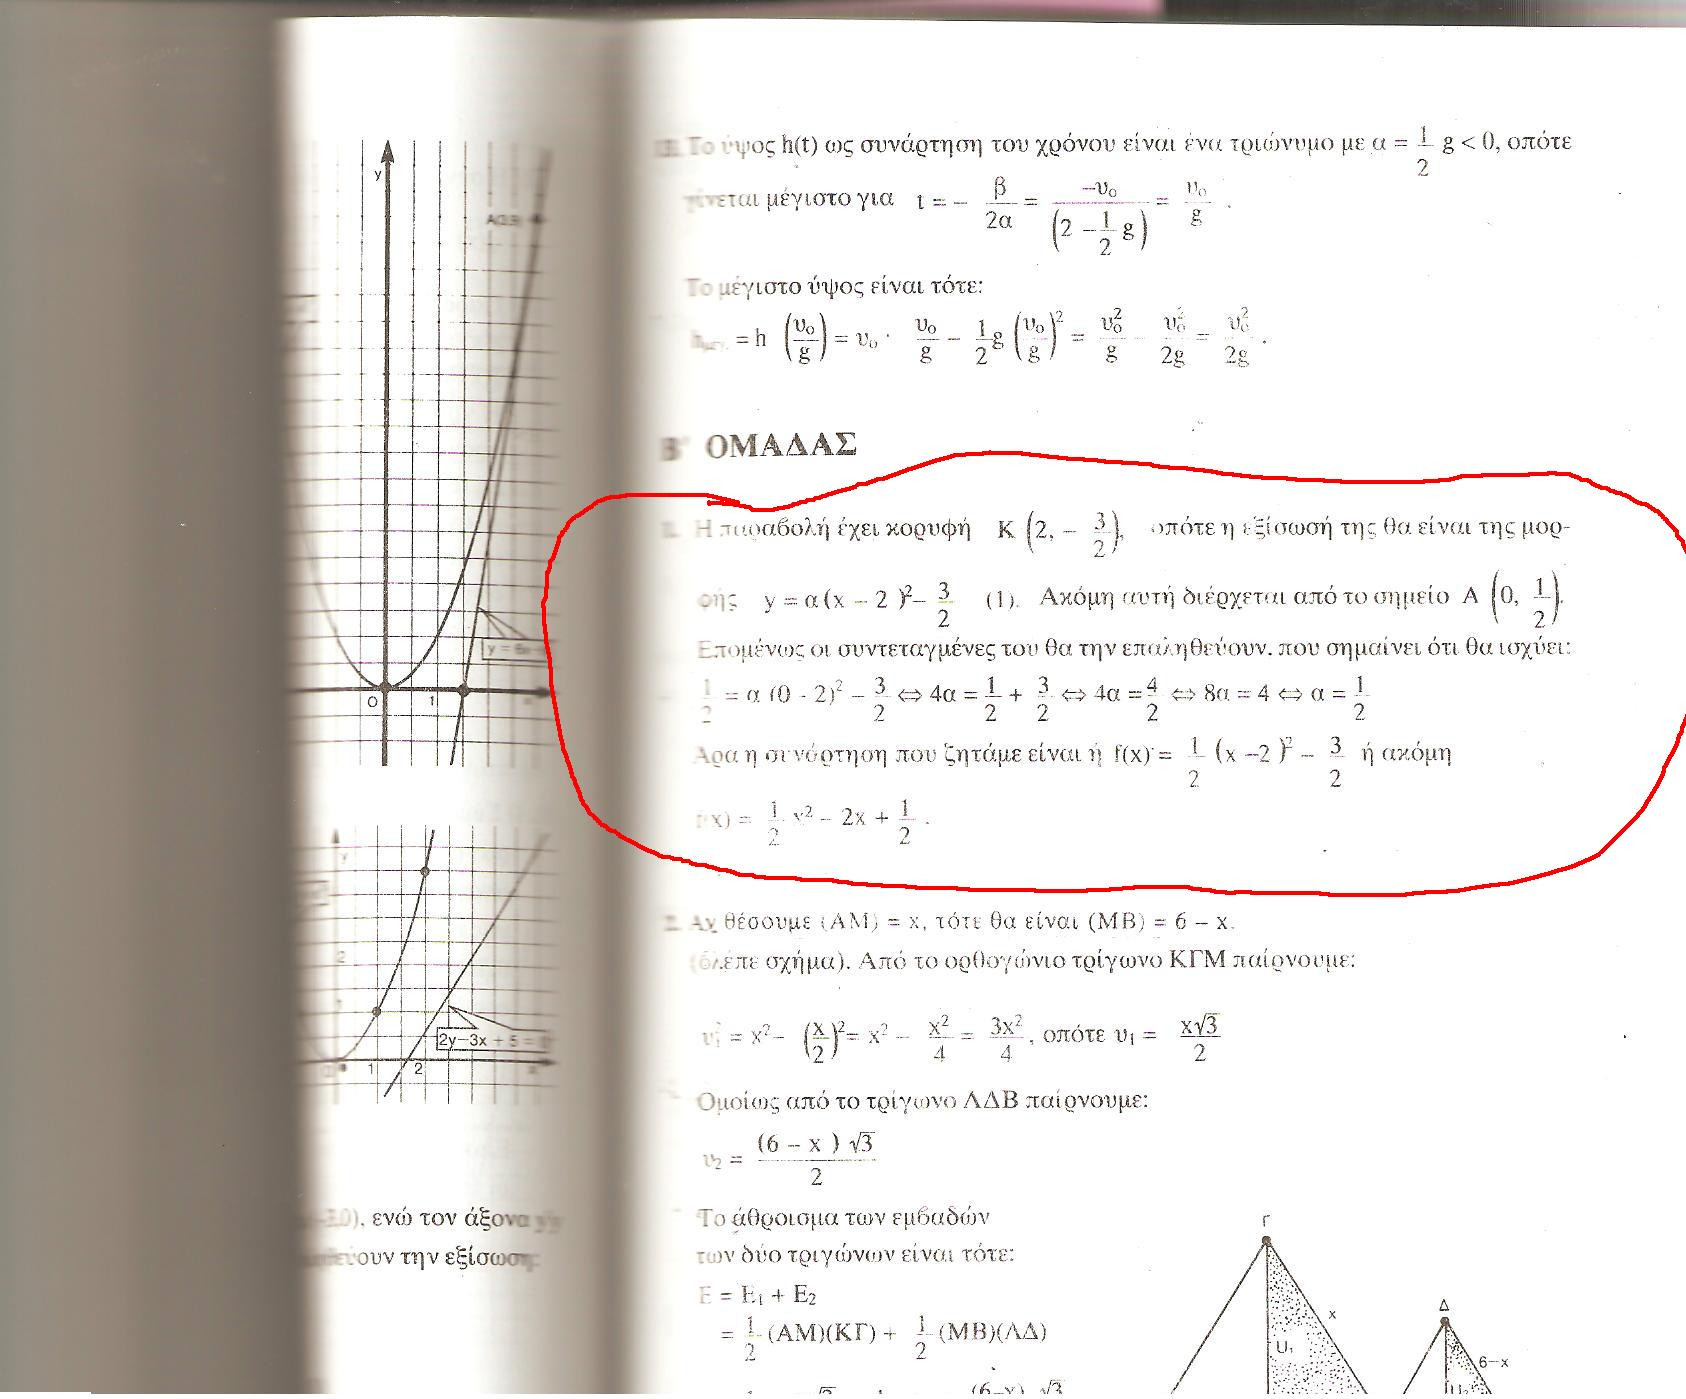 y
A(3,9)
y = 6x
O
1
y
2
1
2y−3x + 5 = 0
1
2
0), ενώ τον άξονα y'y
εύουν την εξίσωση:
13. Το ύψος h(t) ως συνάρτηση του χρόνου είναι ένα τριώνυμο με α = 1/2 g < 0, οπότε
γίνεται μέγιστο για t = − β/2α = −υ₀/(2 −1/2 g) = υ₀/g .
Το μέγιστο ύψος είναι τότε:
hμεγ. = h (υ₀/g) = υ₀ · υ₀/g − 1/2 g (υ₀/g)² = υ₀²/g − υ₀²/2g = υ₀²/2g .
Β' ΟΜΑΔΑΣ
1. Η παραβολή έχει κορυφή Κ (2, − 3/2), οπότε η εξίσωσή της θα είναι της μορ-
φής y = α(x − 2 )² − 3/2 (1). Ακόμη αυτή διέρχεται από το σημείο Α (0, 1/2).
Επομένως οι συντεταγμένες του θα την επαληθεύουν. που σημαίνει ότι θα ισχύει:
1/2 = α (0 - 2)² − 3/2 ⇔ 4α = 1/2 + 3/2 ⇔ 4α = 4/2 ⇔ 8α = 4 ⇔ α = 1/2
Άρα η συνάρτηση που ζητάμε είναι ή f(x) = 1/2 (x −2 )² − 3/2 ή ακόμη
f(x) = 1/2 x² − 2x + 1/2 .
2. Αν θέσουμε (ΑΜ) = x, τότε θα είναι (ΜΒ) = 6 − x.
(βλέπε σχήμα). Από το ορθογώνιο τρίγωνο ΚΓΜ παίρνουμε:
υ₁² = x² − (x/2)² = x² − x²/4 = 3x²/4 , οπότε υ₁ = x√3/2
Ομοίως από το τρίγωνο ΛΔΒ παίρνουμε:
υ₂ = (6 − x ) √3/2
Το άθροισμα των εμβαδών
των δύο τριγώνων είναι τότε:
Ε = Ε₁ + Ε₂
= 1/2 (ΑΜ)(ΚΓ) + 1/2 (ΜΒ)(ΛΔ)
(6−x) √3
Γ
x
U₁
Δ
6−x